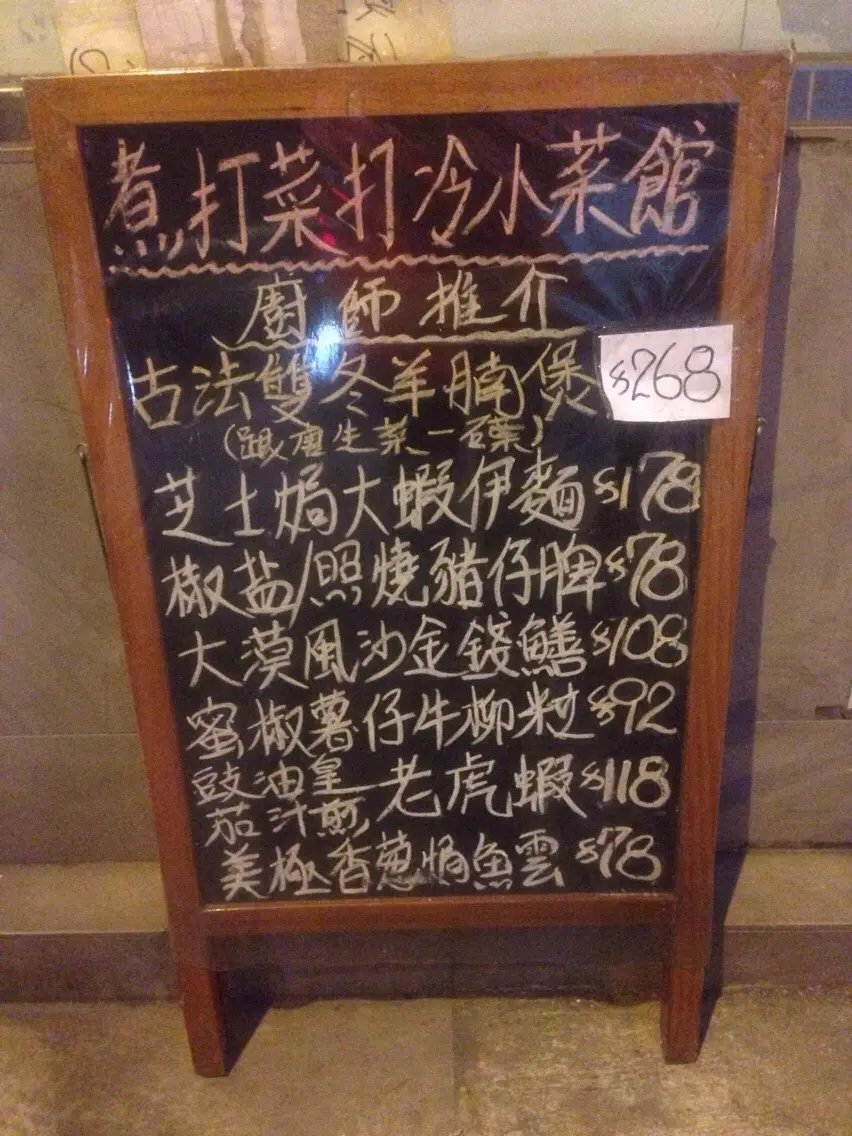 煮打菜打冷小菜館
廚師推介
古法雙冬羊腩煲 $268
(跟唐生菜一碟)
芝士焗大蝦伊麵 $178
椒盐/照燒豬仔脾 $78
大漠風沙金錢鱔 $108
蜜椒薯仔牛柳粒 $92
豉油皇
茄汁煎
老虎蝦 $118
美極香葱焗魚雲 $78